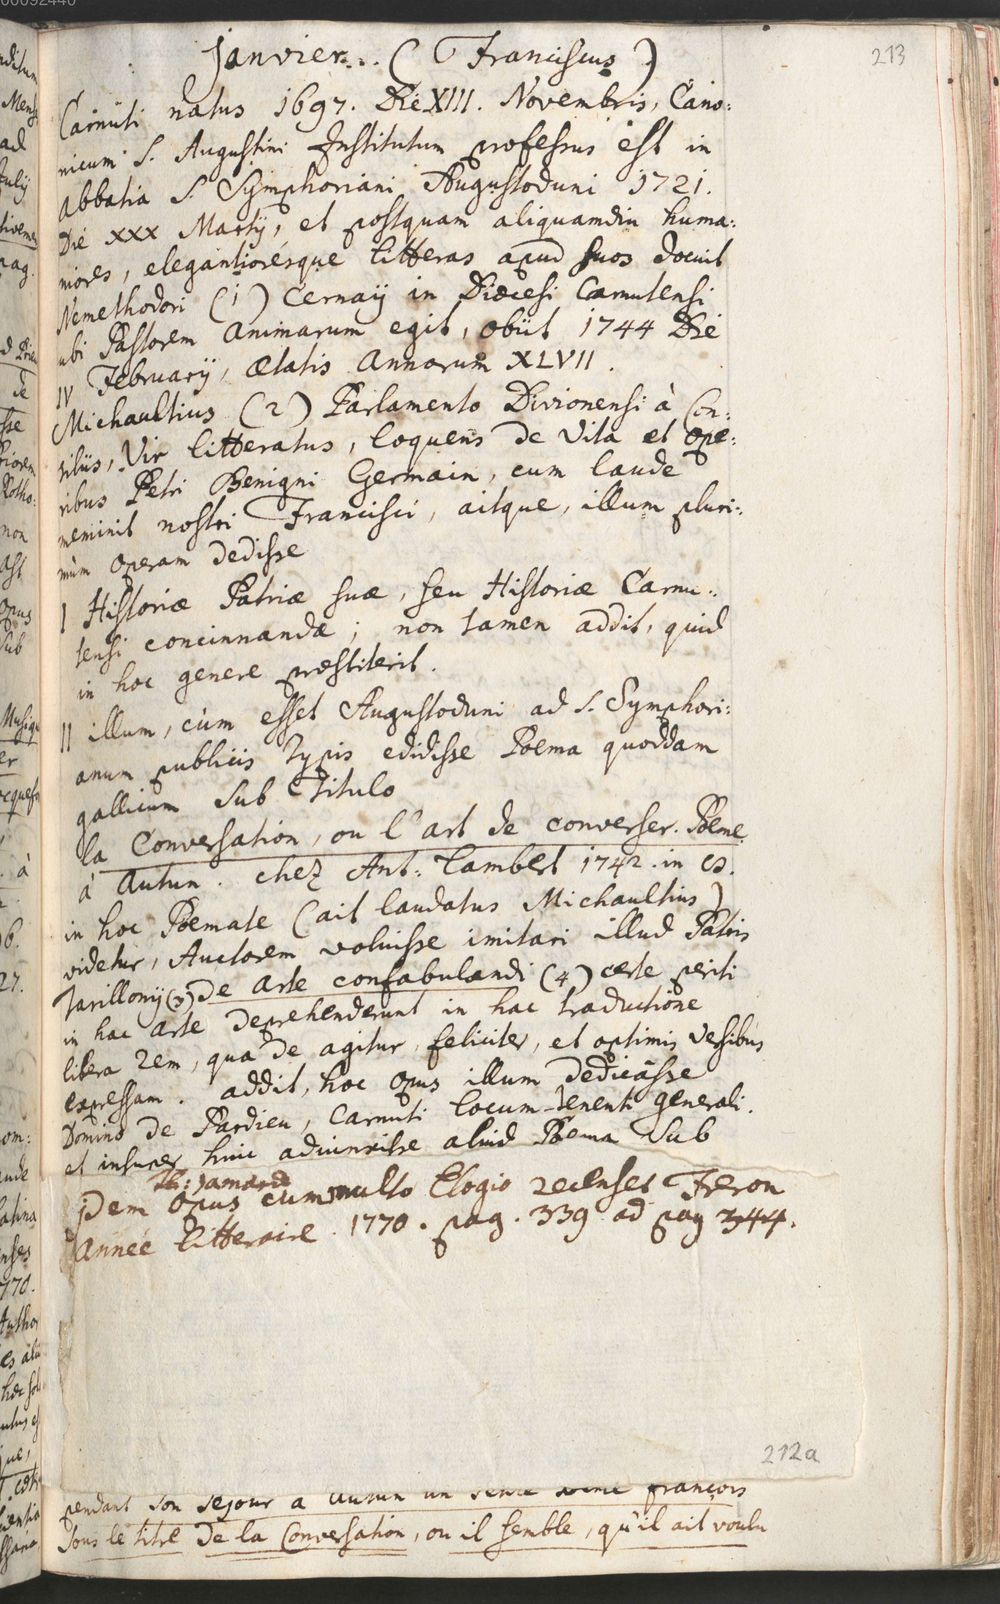 00092440
213
Janvier... (Franciscus)
Carnuti natus 1697. Die XIII. Novembris, Cano:
nicum S. Augustini Institutum professus est in
abbatia S. Symphoriani Augustoduni 1721.
Die XXX Martij, et postquam aliquamdiu huma:
niores, elegantioresque litteras apud suos docuit
Nemethodori (1) Cernaij in Diœcesi Carnutensi
ubi Pastorem animarum egit, obiit 1744 Die
IV February, ætatis annorum XLVII.
Michaultius (2) Parlamento Divionensi à Con:
siliis, Vir litteratus, loquens de Vita et ope:
ribus Petri Benigni Germain, cum laude
meminit nostri Francisci, aitque, illum pluri:
mùm operam dedisse
I Historiæ Patriæ suæ, seu Historiæ Carnu:
tensi concinnandæ; non tamen addit, quid
in hoc genere præstiterit.
II illum, cùm esset Augustoduni ad S. Symphori:
anum publicis typis edidisse Poema quoddam
gallicum sub Titulo
la Conversation, ou l'art de converser. Poëme
à Autun. chez Ant: Lambert 1742. in
in hoc Poemate (ait laudatus Michaultius)
videtur, Auctorem voluisse imitari illud Patris
Tarillonij (3) De Arte confabulandi (4) certe periti
in hac arte deprehenderunt in hac traductione
libera rem, qua de agitur, feliciter, et optimis versibus
expressam. addit, hoc opus illum dedicâsse
Domino de Pardieu, Carnuti locum-tenenti generali.
et insuper huic adiunxisse aliud Poema sub
idem opus cum multo Elogio recenset Freron
année litteraire. 1770. pag. 339 ad pag 344.
212a
pendant son sejour a autun un françois
sous le titre de la Conversation, ou il semble, qu'il ait voulu